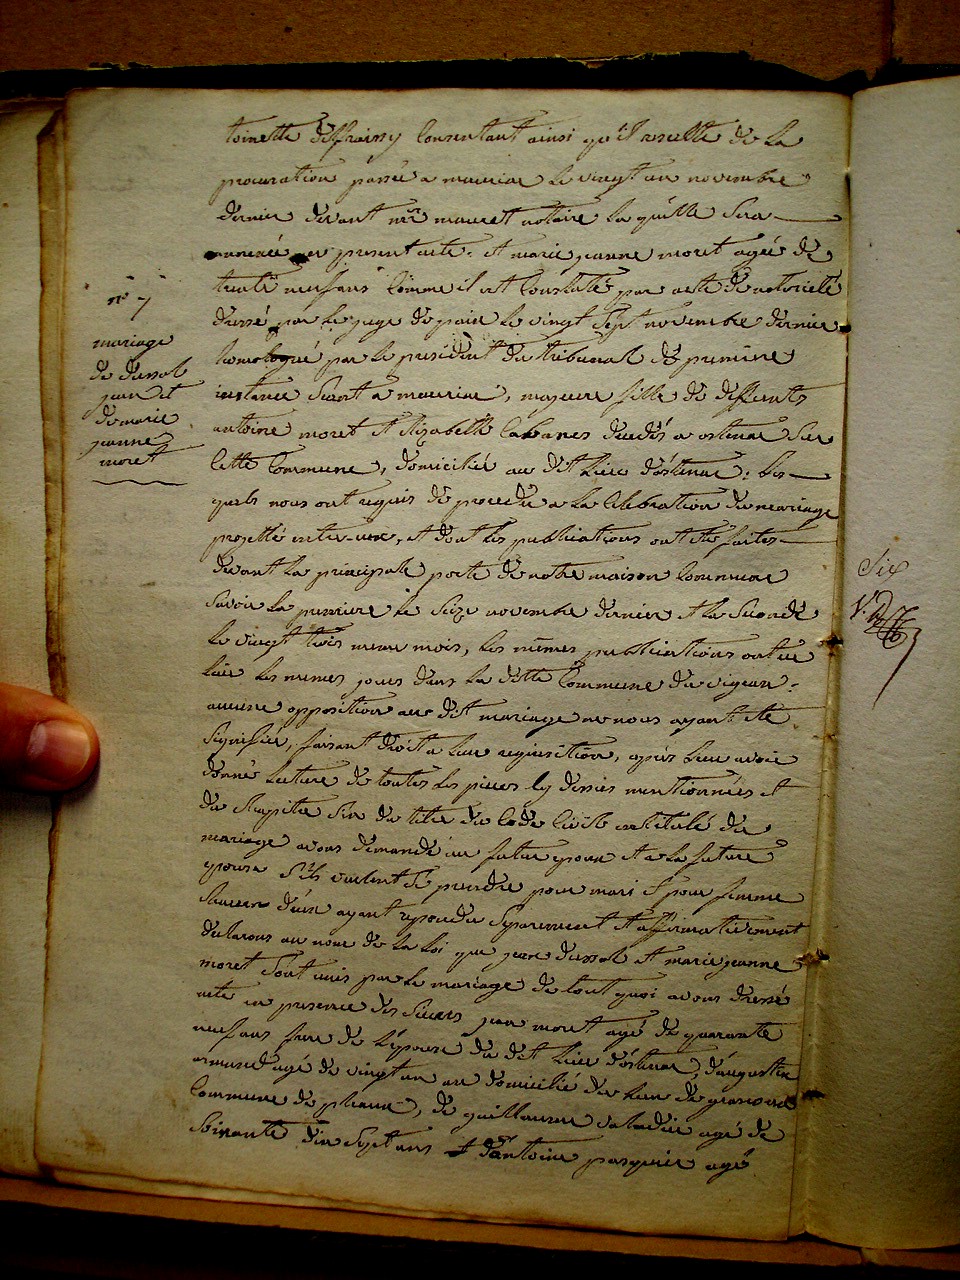 toinette deffraissy Consentant ainsi qu'il resulte de La
procuration passée a mauriac Le vingt un novembre
dernier devant mr mauret notaire La qu'elle Sera
annexée au present acte. et marie jeanne moret agée de
trente neuf ans Comme il est Constaté par acte de notorieté
dressé par Le juge de paix Le vingt Sept novembre dernier
homologué par Le president du tribunal de premiere
instance Seant a mauriac, majeure fille de deffunts
antoine moret et Elizabeth Cabanes decedés a ostenac Sur
Cette Commune, domiciliée au dit Lieu d'ostenac. Les
quels nous ont requis de proceder a La Celebration du mariage
projetté entre eux, et dont Les publications ont été faites
devant La principale porte de notre maison Commune
Savoir La premiere Le Seize novembre dernier et La Seconde
Le vingt trois meme mois, Les mêmes publications ont eu
Lieu Les memes jours dans La ditte Commune du vigean.
aucune opposition au dit mariage ne nous ayant été
Signifiée, faisant droit a Leur requisition, après Leur avoir
donné Lecture de toutes Les pieces Cy dessus mentionnées et
du Chapitre Six du titre du Code Civil intitulé du
mariage avons demandé au futur epoux et a La future
epouse S'ils veulent Se prendre pour mari et pour femme
Chacun d'eux ayant repondu Separement et affirmativement
declarons au nom de La Loi que jean dussol et marie jeanne
moret Sont unis par Le mariage de tout quoi avons dressé
acte en presence des Sieurs jean moret agé de quarante
neuf ans frere de L'epouse du dit Lieu d'ostenac, d'augustin
agé de vingt un an domicilié du Lieu de
Commune de pleaux, de guillaume agé de
Soixante dix Sept ans et d'antoine pasquier agé
no 7
mariage
de dussol
jean et
de marie
jeanne
moret
Six